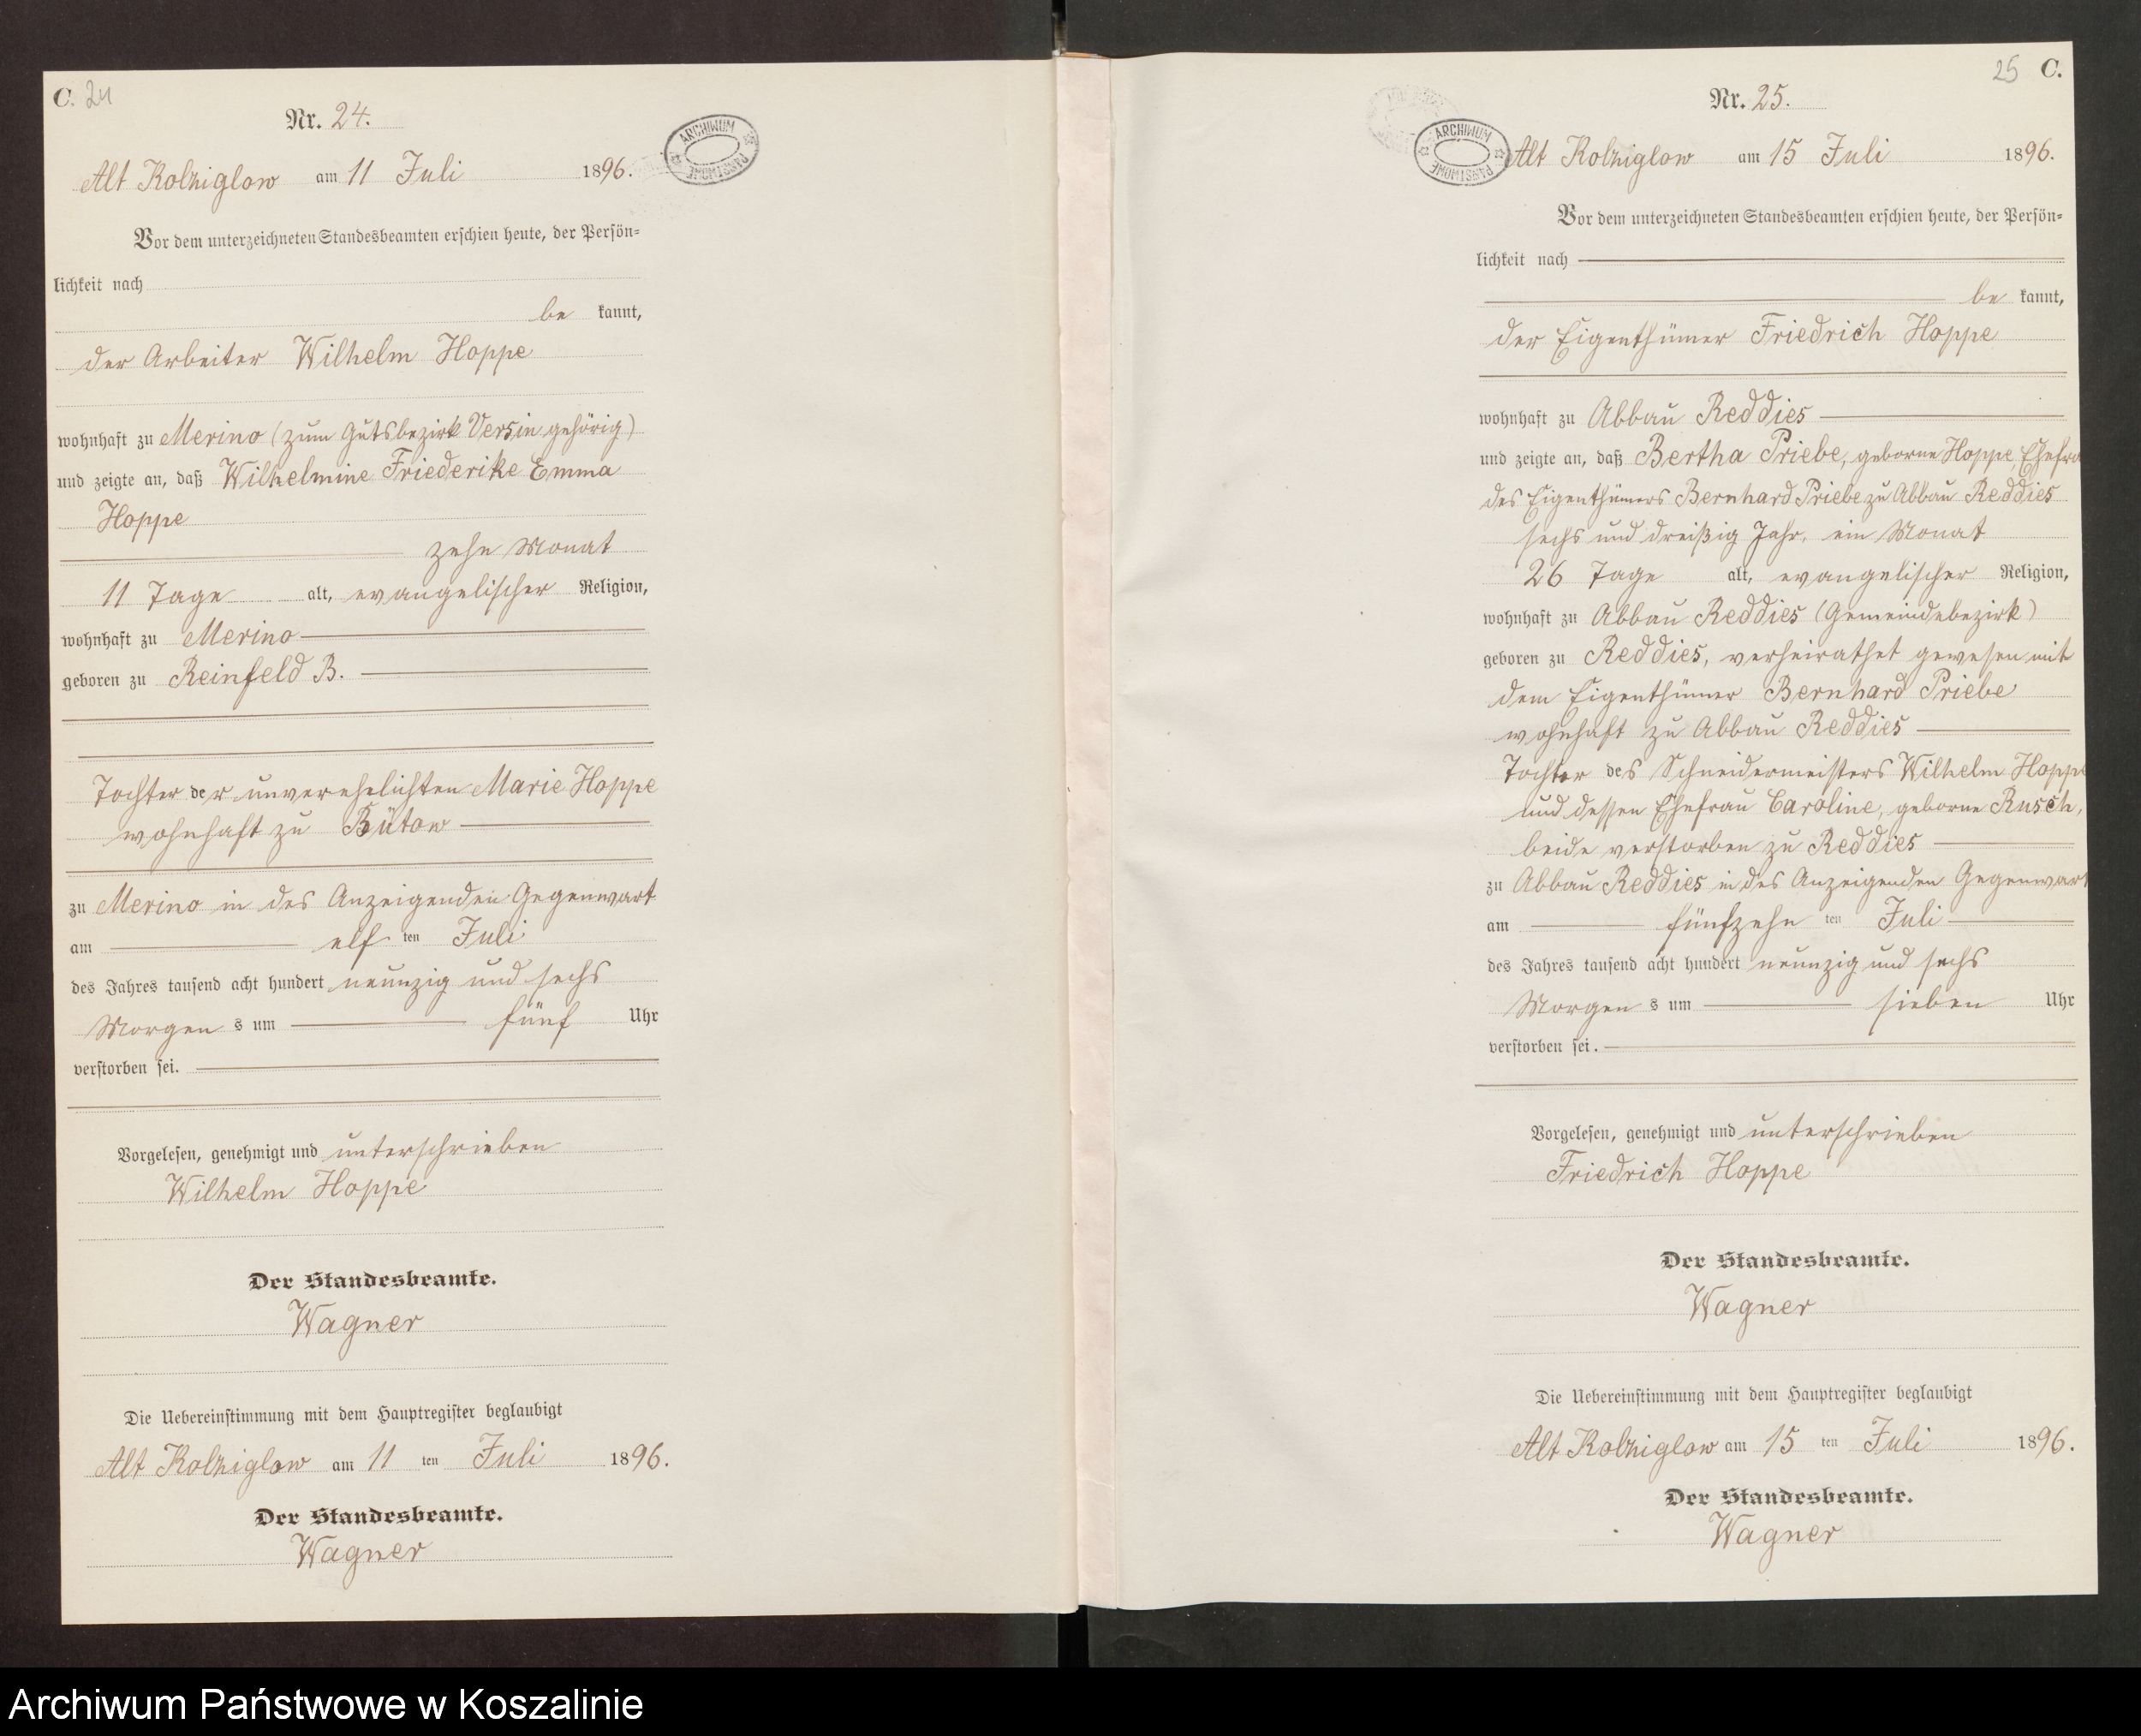 C. 24
Nr. 24.
ARCHIWUM PAŃSTWOWE
Alt Kolziglow am 11 Juli 1896.
Vor dem unterzeichneten Standesbeamten erschien heute, der Persön-
lichkeit nach
be kannt,
der Arbeiter Wilhelm Hoppe
wohnhaft zu Merino (zum Gutsbezirk Versin gehörig)
und zeigte an, daß Wilhelmine Friederike Emma
Hoppe
zehn Monat
11 Tage alt, evangelischer Religion,
wohnhaft zu Merino
geboren zu Reinfeld B.
Tochter der unverehelichten Marie Hoppe
wohnhaft zu Bütow
zu Merino in des Anzeigenden Gegenwart
am elf ten Juli
des Jahres tausend acht hundert neunzig und sechs
Morgen s um fünf Uhr
verstorben sei.
Vorgelesen, genehmigt und unterschrieben
Wilhelm Hoppe
Der Standesbeamte.
Wagner
Die Uebereinstimmung mit dem Hauptregister beglaubigt
Alt Kolziglow am 11 ten Juli 1896.
Der Standesbeamte.
Wagner
25 C.
Nr. 25.
ARCHIWUM PAŃSTWOWE
Alt Kolziglow am 15 Juli 1896.
Vor dem unterzeichneten Standesbeamten erschien heute, der Persön-
lichkeit nach
be kannt,
der Eigenthümer Friedrich Hoppe
wohnhaft zu Abbau Reddies
und zeigte an, daß Bertha Priebe, geborne Hoppe, Ehefra
des Eigenthümers Bernhard Priebe zu Abbau Reddies
sechs und dreißig Jahr, ein Monat
26 Tage alt, evangelischer Religion,
wohnhaft zu Abbau Reddies (Gemeindebezirk)
geboren zu Reddies, verheirathet gewesen mit
dem Eigenthümer Bernhard Priebe
wohnhaft zu Abbau Reddies
Tochter des Schneidermeisters Wilhelm Hoppe
und dessen Ehefrau Caroline, geborne Rusch,
beide verstorben zu Reddies
zu Abbau Reddies in des Anzeigenden Gegenwart
am fünfzehn ten Juli
des Jahres tausend acht hundert neunzig und sechs
Morgen s um sieben Uhr
verstorben sei.
Vorgelesen, genehmigt und unterschrieben
Friedrich Hoppe
Der Standesbeamte.
Wagner
Die Uebereinstimmung mit dem Hauptregister beglaubigt
Alt Kolziglow am 15 ten Juli 1896.
Der Standesbeamte.
Wagner
Archiwum Państwowe w Koszalinie